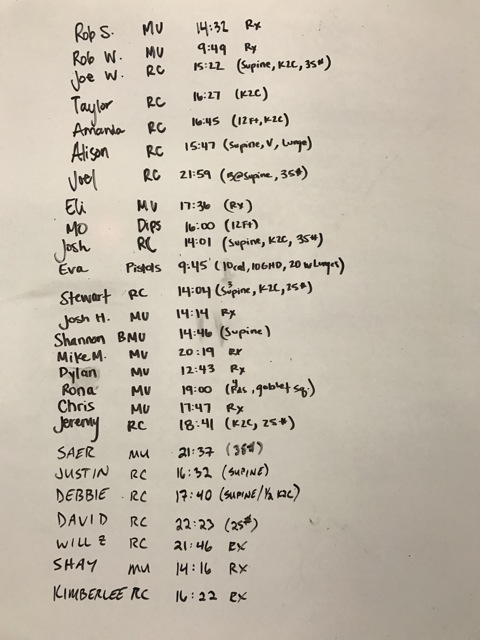 Rob S. MU 14:32 Rx
Rob W. MU 9:49 Rx
Joe W. RC 15:22 (Supine, K2C, 35#)
Taylor RC 16:27 (K2C)
Amanda RC 16:45 (12Ft, K2C)
Alison RC 15:47 (Supine, V, Lunge)
Joel RC 21:59 (B@Supine, 35#)
Eli MU 17:36 (Rx)
MO Dips 16:00 (12Ft)
Josh RC 14:01 (Supine, K2C, 35#)
Eva Pistols 9:45 (10cal, 10GHD, 20 w Lunges)
Stewart RC 14:04 (Supine, K2C, 25#)
Josh H. MU 14:14 Rx
Shannon BMU 14:46 (Supine)
Mike M. MU 20:19 Rx
Dylan MU 12:43 Rx
Rona MU 19:00 goblet Sq.)
Chris MU 17:47 Rx
Jeremy RC 18:41 (K2C, 25#)
SAER MU 21:37 (35#)
JUSTIN RC 16:32 (SUPINE)
DEBBIE RC 17:40 (SUPINE/½ K2C)
DAVID RC 22:23 (25#)
WILL Z RC 21:46 RX
SHAY MU 14:16 RX
KIMBERLEE RC 16:22 RX